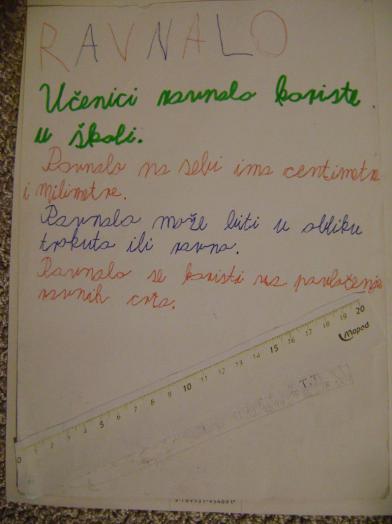 RAVNALO
Učenici ravnalo koriste
u školi.
Ravnalo na sebi ima centimetre
i milimetre.
Ravnalo može biti u obliku
trokuta ili ravno.
Ravnalo se koristi za povlačenje
ravnih crta.
0 1 2 3 4 5 6 7 8 9 10 11 12 13 14 15 16 17 18 19 20
Maped